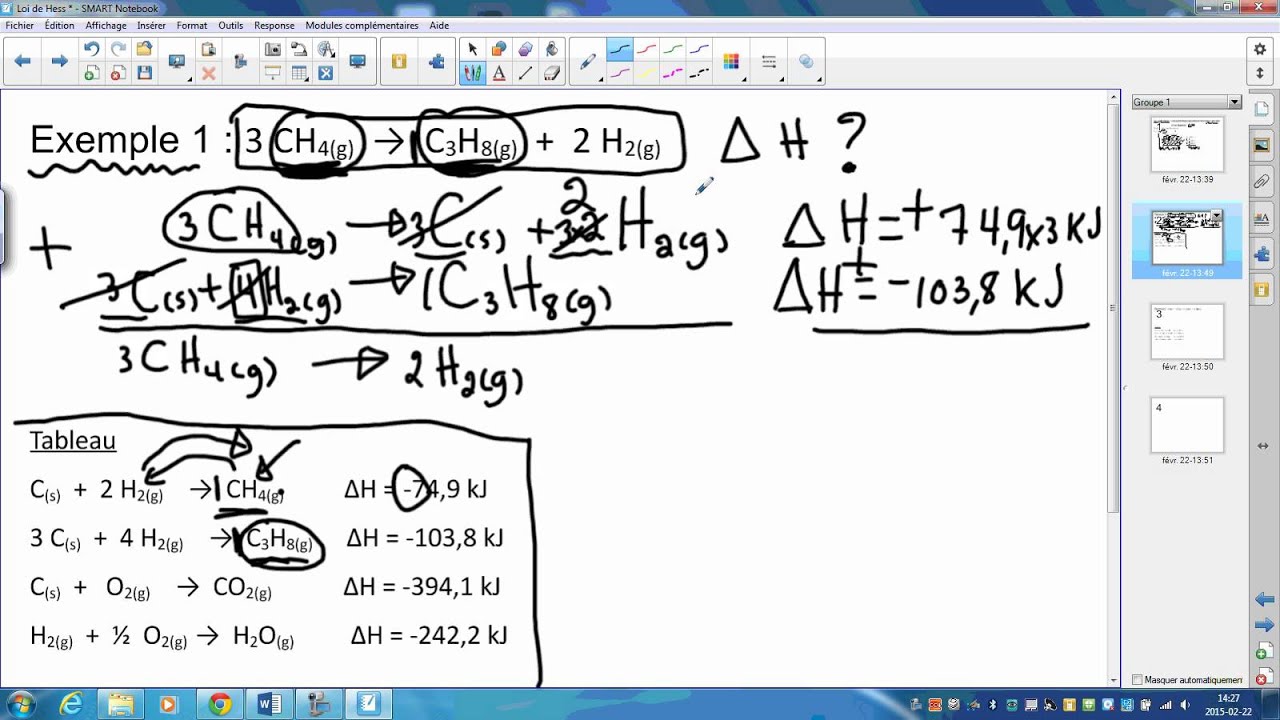 Loi de Hess * - SMART Notebook
Fichier Édition Affichage Insérer Format Outils Response Modules complémentaires Aide
Exemple 1 : 3 CH4(g) → 1 C3H8(g) + 2 H2(g) ΔH ?
3CH4(g) → 3C(s) + 3x2 2 H2(g) ΔH = +74,9x3 KJ
+ 3C(s) + 4H2(g) → 1C3H8(g) ΔH = -103,8 KJ +
3CH4(g) → 2H2(g)
Tableau
C(s) + 2 H2(g) → 1 CH4(g) ΔH = -74,9 kJ
3 C(s) + 4 H2(g) → 1 C3H8(g) ΔH = -103,8 kJ
C(s) + O2(g) → CO2(g) ΔH = -394,1 kJ
H2(g) + ½ O2(g) → H2O(g) ΔH = -242,2 kJ
Groupe 1
févr. 22-13:39
févr. 22-13:49
3
févr. 22-13:50
4
févr. 22-13:51
Masquer automatiquement
14:27
2015-02-22